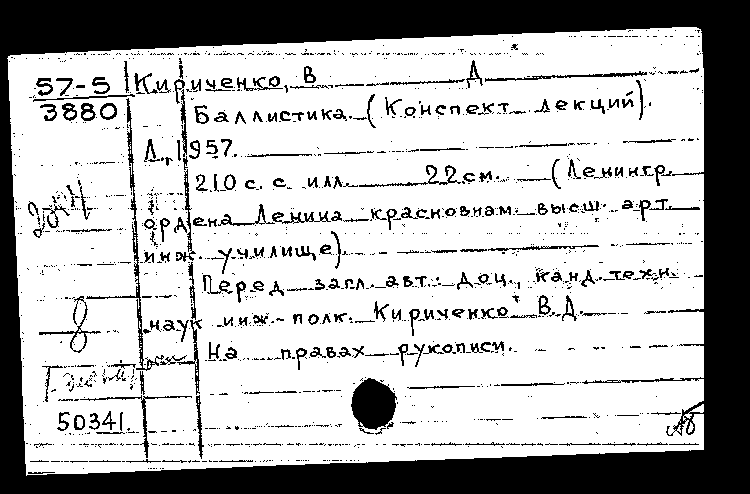 57-5 Кириченко, В Д
3880 Баллистика. (Конспект лекций).
Л., 1957.
210 с. с илл. 22 см. (Ленингр.
ордена Ленина краснознам. высш. арт.
инж. училище).
Перед загл. авт: доц., канд. техн.
наук инж-полк. Кириченко В.Д.
8
На правах рукописи.
50341.